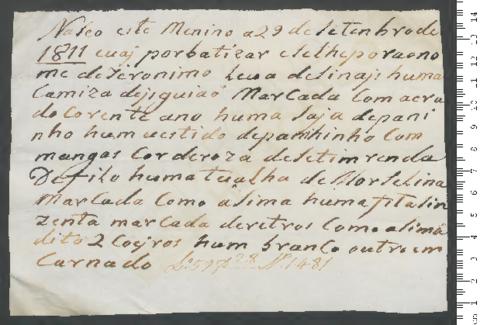 Nasco este Menino a 29 de setenbro de
1811 e uaj por batizar e selhe pora o no
me de Jeronimo Leua de sinaj huma
Camiza de jiguiaó Marcada Com a era
do Corente ano huma saja de pani
nho hum uestido de paninho Com
mangas Cor de roza de setim renda
De filo huma tualha de Morselina
Marcada Como asima huma fita sin
zenta marcada de retros Como asima
dito 2 Coejros hum branco outro em
Carnado